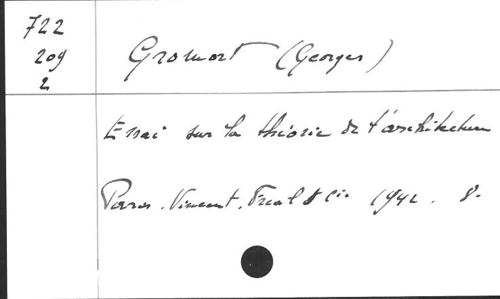 722
209
2
Gromort (Georges)
Essai sur la théorie de l'architecture
Paris. Vincent. Fréal & Cie. 1942. 8.